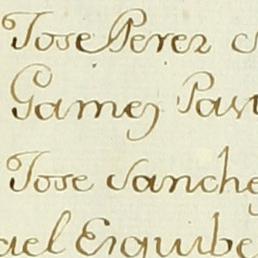 Jose Perez
Gamez Pav
Jose Sanche
ael Esquibe